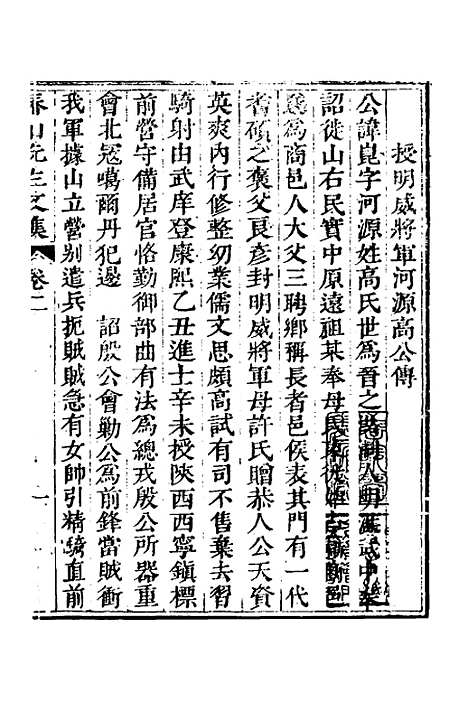 授明威將軍河源高公傳
公諱崑字河源姓高氏世為晉之人明洪武中奉
詔徙山右民實中原遠祖某奉母氏
為商邑人大父三聘鄉稱長者邑侯表其門有一代
耆碩之褒父良彥封明威將軍母許氏贈恭人公天資
英爽內行修整幼業儒文思頗高試有司不售棄去習
騎射由武庠登康熙乙丑進士辛未授陝西西寧鎮標
前營守備居官恪勤御部曲有法為總戎殷公所器重
會北寇噶爾丹犯邊　詔殷公會勦公為前鋒當賊衝
我軍據山立營別遣兵扼賊賊急有女帥引精騎直前
春山先生文集　卷二　一